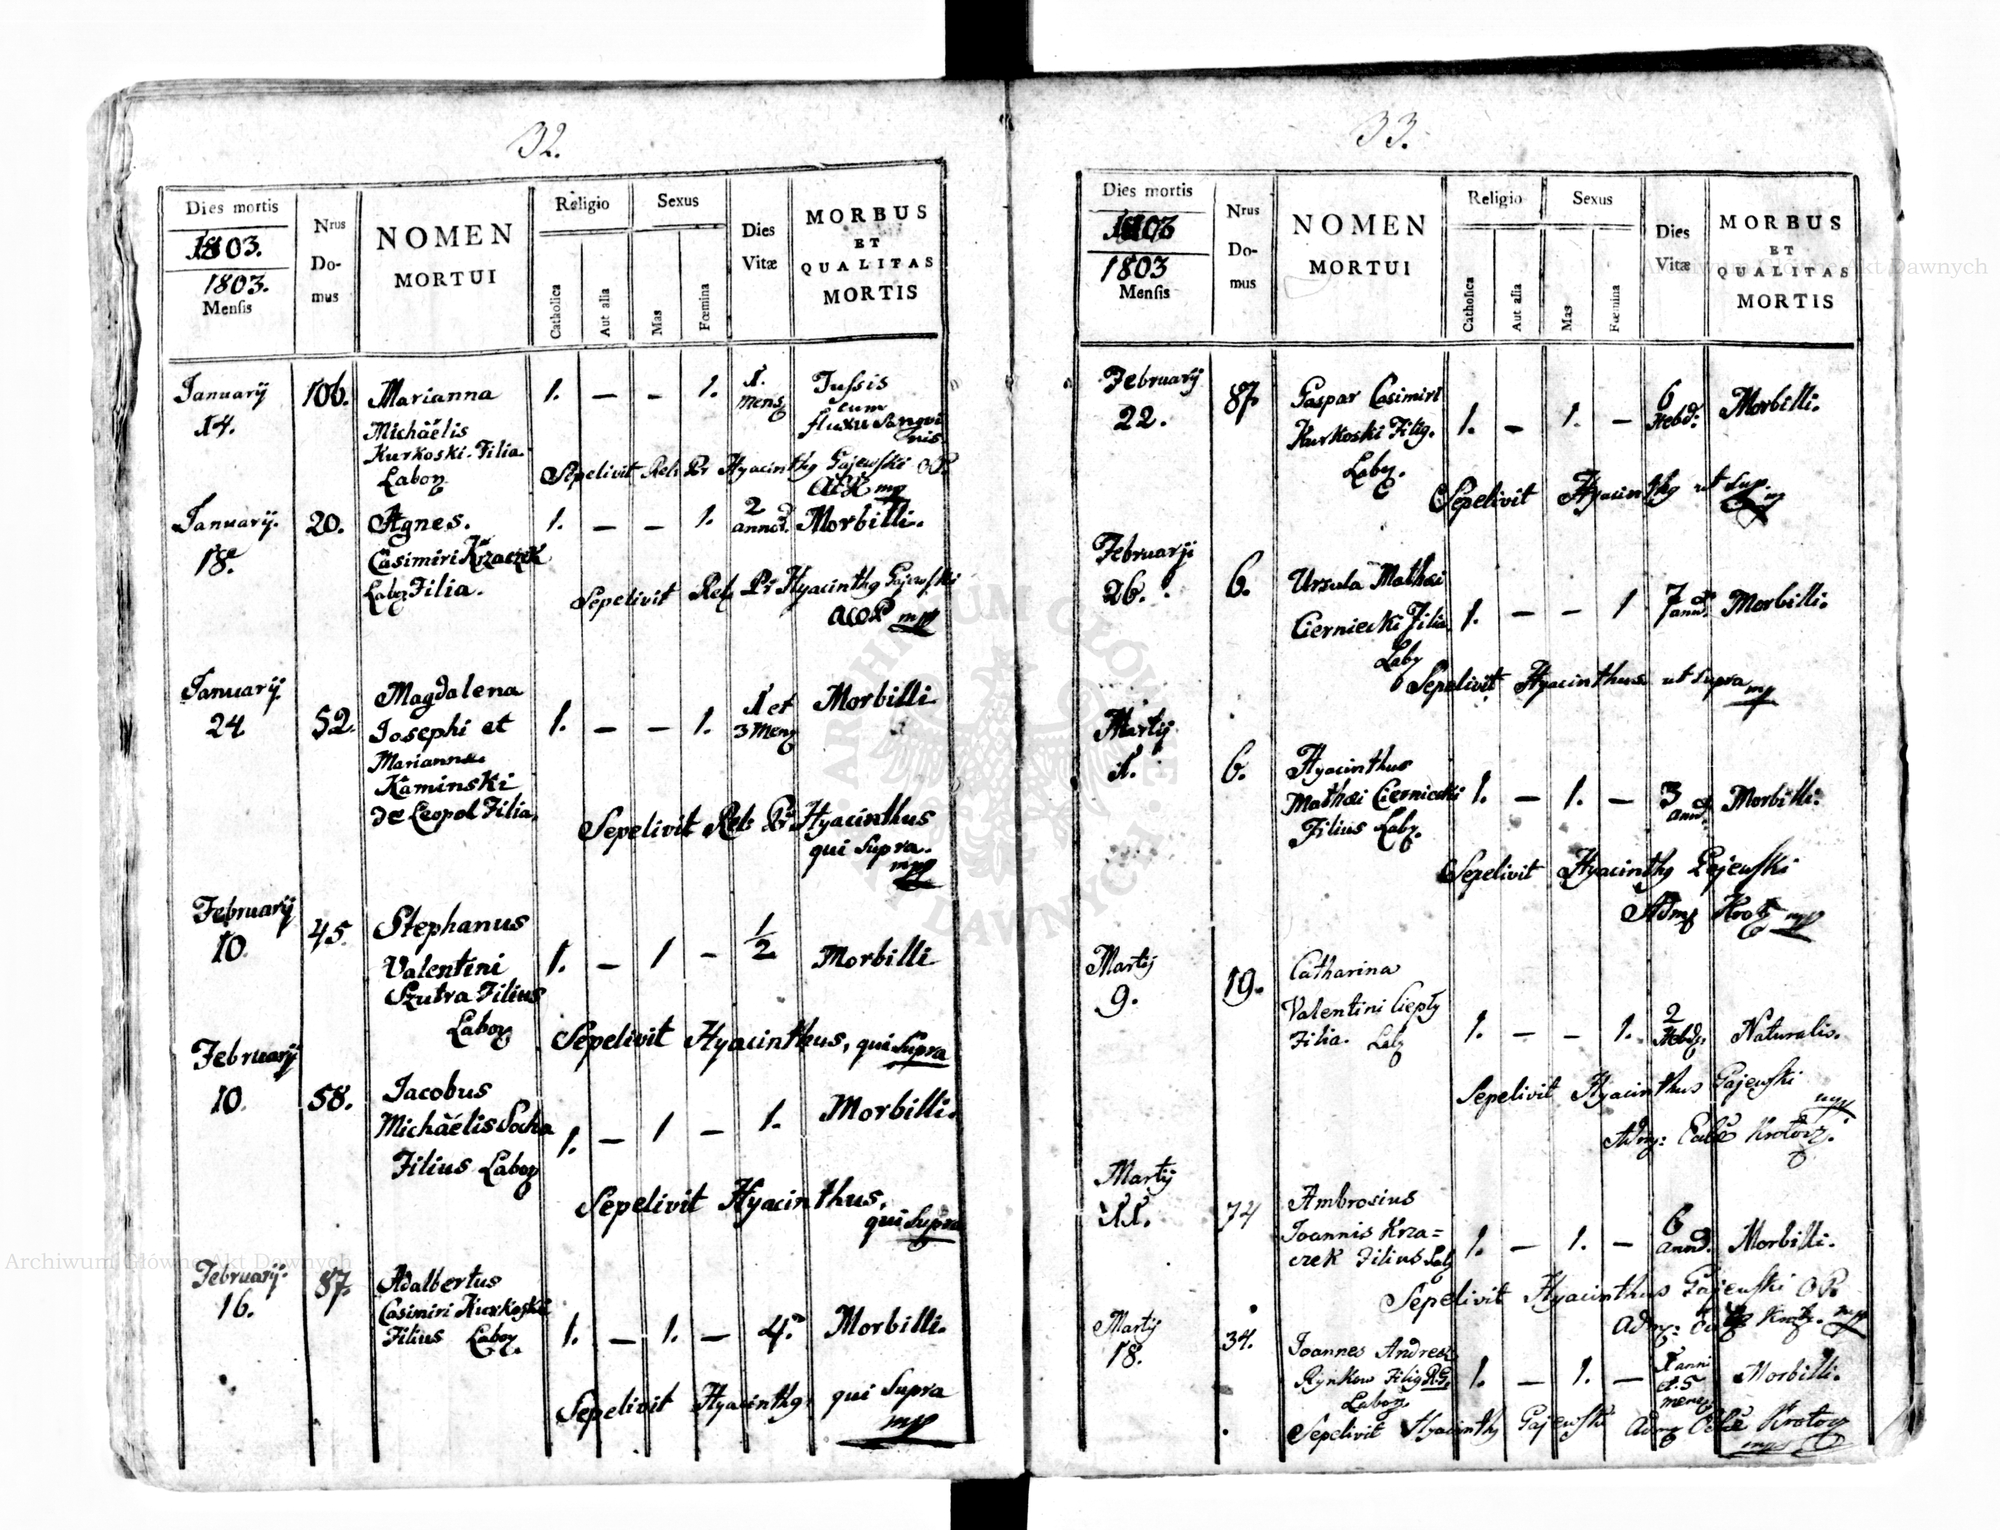 32.
Dies mortis
1803.
1803.
Mensis
Nrus
Do-
mus
NOMEN
MORTUI
Religio
Catholica
Aut alia
Sexus
Mas
Fœmina
Dies
Vitæ
MORBUS
ET
QUALITAS
MORTIS
Januarij
14.
106.
Marianna
Michaëlis
Kurkoski Filia
Labor
1. — — 1.
1.
mens
Tussis
cum
fluxu Sangvi
nis
Sepelivit Rel: Pr Hyacinthg Gajewski OP.
ACK mp
Januarij.
18.
20.
Agnes.
Casimiri Krzaczek
Labor Filia.
1. — — 1.
2
annor.
Morbilli.
Sepelivit Rel: Pr Hyacinthg Gajewski
mp
Januarij
24
52.
Magdalena
Josephi et
Mariannæ
Kaminski
de Leopol Filia.
1. — — 1.
1 et
3 Mens
Morbilli
Sepelivit Rel: Pr. Hyacinthus
qui Supra.
mpp
Februarij
10.
45.
Stephanus
Valentini
Szutra Filius
Labor
1. — 1 —
1/2
Morbilli
Sepelivit Hyacinthus, qui Supra
Februarij
10.
58.
Jacobus
Michaëlis Socha
Filius Labor
1. — 1 — 1.
Morbilli.
Sepelivit Hyacinthus,
qui Supra
Februarij.
16.
87.
Adalbertus
Casimiri Kurkoski
Filius Labor.
1. — 1. — 4.
Morbilli.
Sepelivit Hyacinthg qui Supra
mpp
33.
Dies mortis
1803
1803
Mensis
Nrus
Do-
mus
NOMEN
MORTUI
Religio
Catholica
Aut alia
Sexus
Mas
Fœmina
Dies
Vitæ
MORBUS
ET
QUALITAS
MORTIS
Februarij
22.
87.
Gaspar Casimiri
Kurkoski Filig.
Labor.
1. — 1. —
6
Hebd.
Morbilli.
Sepelivit Hyacinthg ut Sup.
Februarji
26.
6.
Ursula Mathæi
Cierniecki Filia
Labor
1. — — 1
7
annor.
Morbilli.
Sepelivit Hyacinthus ut Supra
mp
Martij
1.
6.
Hyacinthus
Mathæi Cierniecki
Filius Labor.
1. — 1. —
3
annor.
Morbilli.
Sepelivit Hyacinthg Gajewski
Adm Krot mpp
Martij
9.
19.
Catharina
Valentini Ciepły
Filia. Lab
1. — — 1.
2
Hebd.
Naturalis.
Sepelivit Hyacinthus Gajewski
mpp
Adm: Krotosz.
Martij
11.
74
Ambrosius
Joannis Krza=
czek Filius Lab
1. — 1. —
6
annor.
Morbilli.
Sepelivit Hyacinthus Gajewski OP.
Adm: mpp
Martij
18.
34.
Joannes Andreæ
Rynkow Filig R.G.
Labor
1. — 1. —
1 anni
et 5
mens
Morbilli.
Sepelivit Hyacinthg Gajewski
Archiwum Główne Akt Dawnych
Archiwum Główne Akt Dawnych
ARCHIWUM GŁÓWNE AKT DAWNYCH